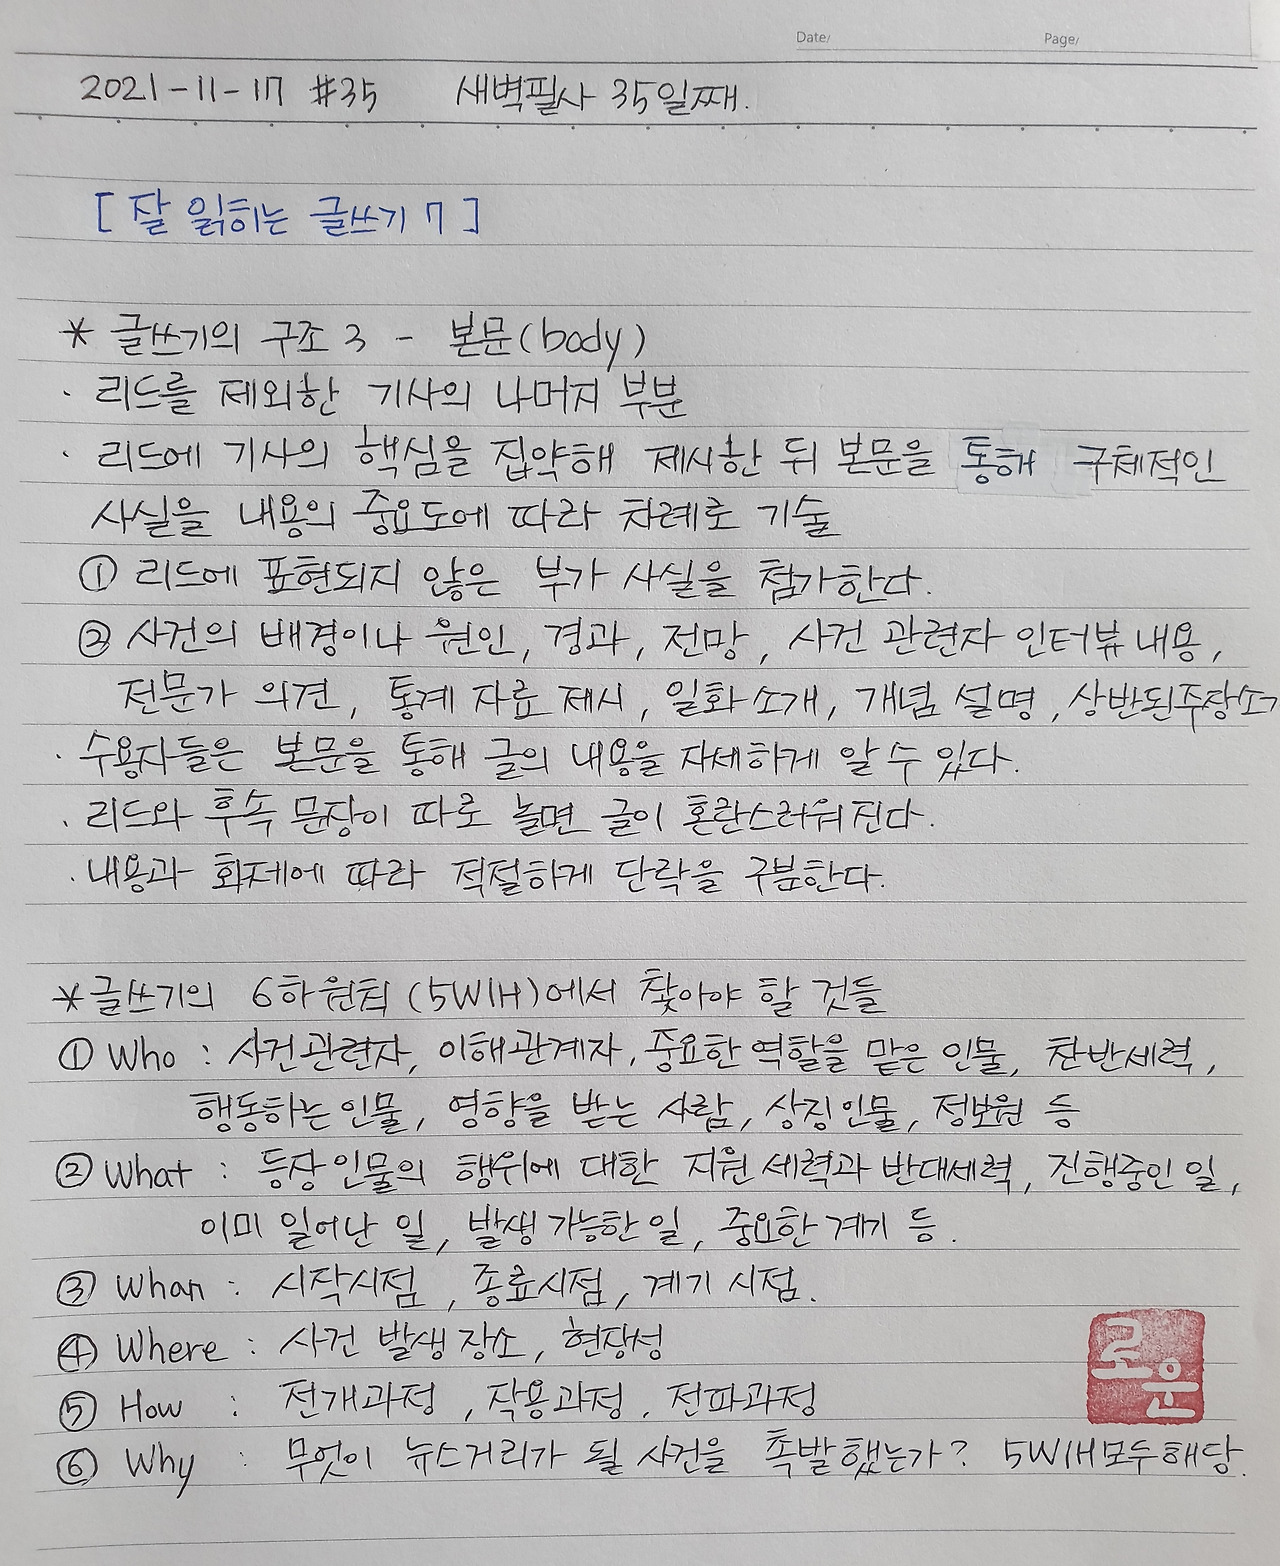 Date/ Page/
2021-11-17 #35 새벽필사 35일째.
[ 잘 읽히는 글쓰기 7 ]
* 글쓰기의 구조 3 - 본문(body)
· 리드를 제외한 기사의 나머지 부분
· 리드에 기사의 핵심을 집약해 제시한 뒤 본문을 통해 구체적인
사실을 내용의 중요도에 따라 차례로 기술
① 리드에 표현되지 않은 부가 사실을 첨가한다.
② 사건의 배경이나 원인, 경과, 전망, 사건 관련자 인터뷰 내용,
전문가 의견, 통계 자료 제시, 일화 소개, 개념 설명, 상반된 주장
· 수용자들은 본문을 통해 글의 내용을 자세하게 알 수 있다.
· 리드와 후속 문장이 따로 놀면 글이 혼란스러워진다.
· 내용과 화제에 따라 적절하게 단락을 구분한다.
* 글쓰기의 6하원칙 (5W1H)에서 찾아야 할 것들
① Who : 사건관련자, 이해관계자, 중요한 역할을 맡은 인물, 찬반세력,
행동하는 인물, 영향을 받는 사람, 상징인물, 정보원 등
② What : 등장인물의 행위에 대한 지원 세력과 반대세력, 진행중인 일,
이미 일어난 일, 발생 가능한 일, 중요한 계기 등.
③ Whan : 시작시점, 종료시점, 계기 시점.
④ Where : 사건 발생 장소, 현장성
⑤ How : 전개과정, 작용과정, 전파과정
⑥ Why : 무엇이 뉴스거리가 될 사건을 촉발했는가? 5W1H모두해당.
로운